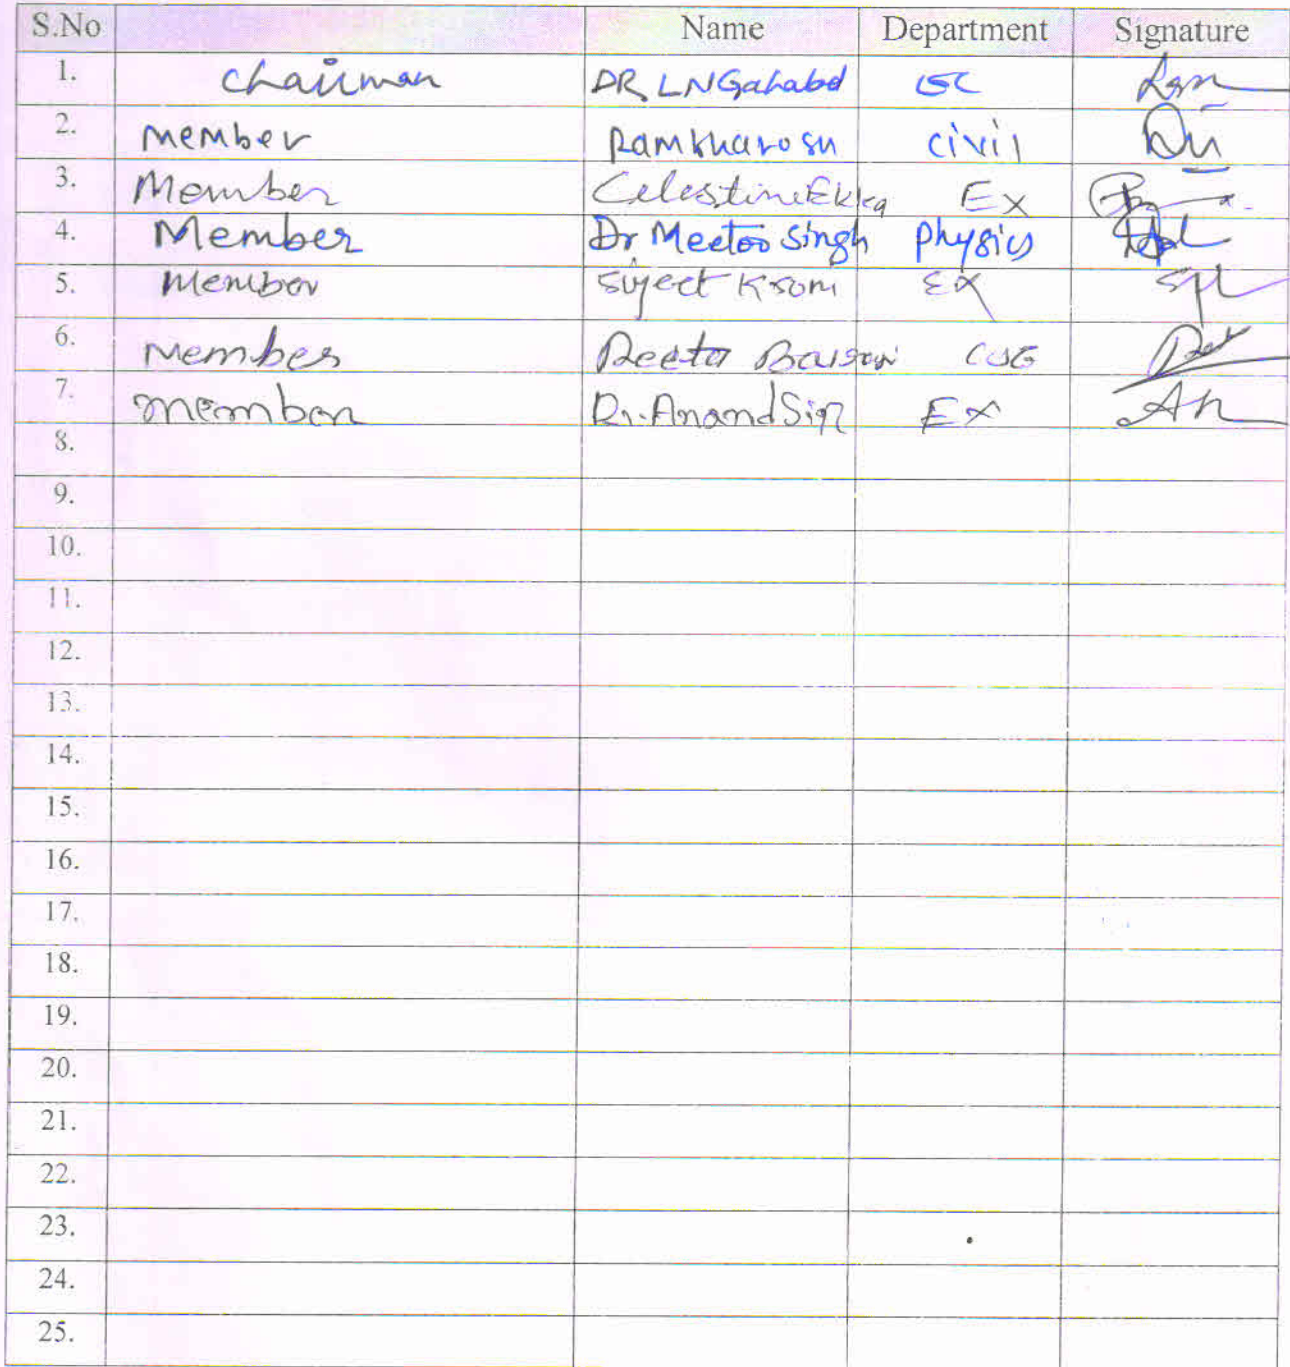 S.No Name Department Signature
1. Chairman DR LNGahabd
2. Member Civil
3. Member Celestine Ekka Ex
4. Member Dr Meetoo Singh Physics
5. Member Sujeet Ex
6. Member Reeta CSE
7. Member Dr. Anand Ex
8.
9.
10.
11.
12.
13.
14.
15.
16.
17.
18.
19.
20.
21.
22.
23.
24.
25.